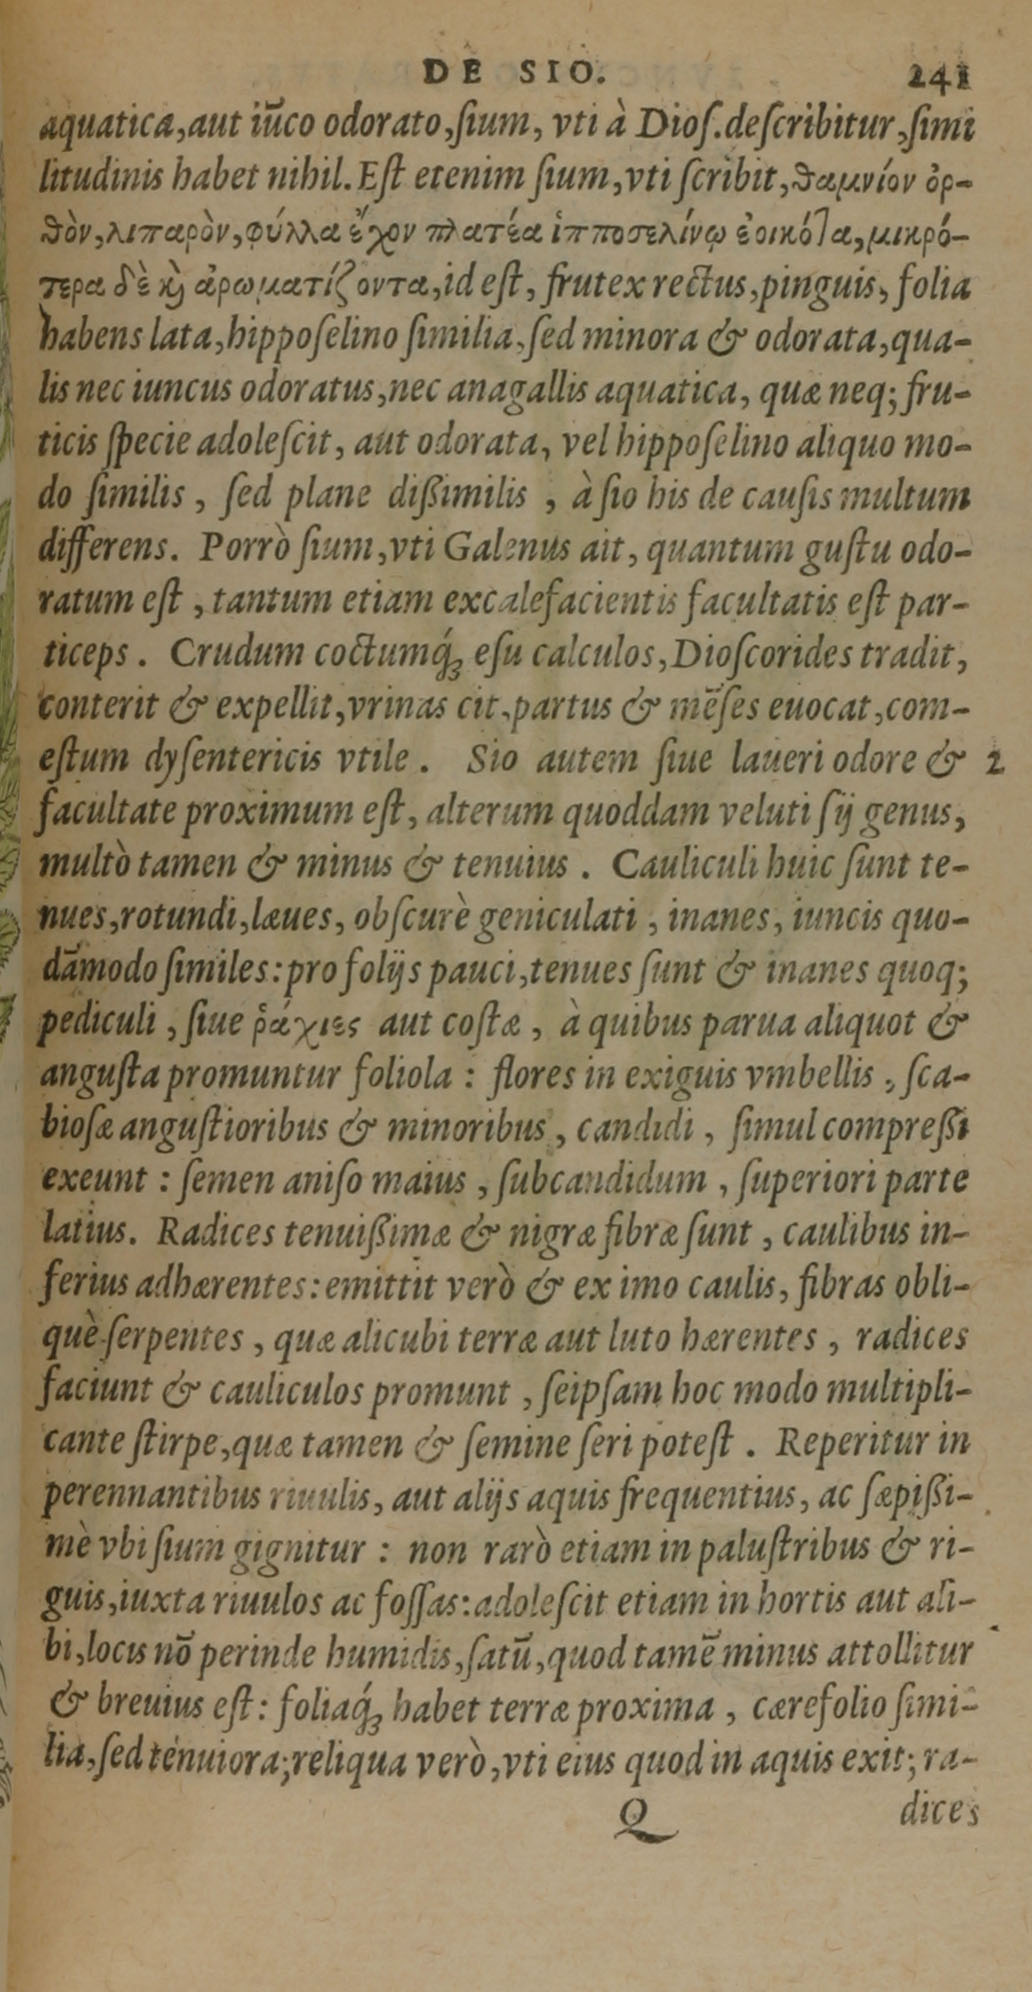 DE SIO. 241
aquatica, aut iũco odorato, ſium, vti à Dioſ. deſcribitur, ſimi
litudinis habet nihil. Eſt etenim ſium, vti ſcribit, θαμνίον ὀρ-
θὸν, λιπαρὸν, φύλλα ἔχον πλατέα ἱπποσελίνῳ ἐοικότα, μικρό-
τερα δὲ κ̀ ἀρωματίζοντα, id eſt, frutex rectus, pinguis, folia
habens lata, hippoſelino ſimilia, ſed minora & odorata, qua-
lis nec iuncus odoratus, nec anagallis aquatica, quæ neq; fru-
ticis ſpecie adoleſcit, aut odorata, vel hippoſelino aliquo mo-
do ſimilis, ſed plane dißimilis, à ſio his de cauſis multum
differens. Porrò ſium, vti Galenus ait, quantum guſtu odo-
ratum eſt, tantum etiam excalefacientis facultatis eſt par-
ticeps. Crudum coctumq́ꝫ eſu calculos, Dioſcorides tradit,
conterit & expellit, vrinas cit, partus & mẽſes euocat, com-
eſtum dyſentericis vtile. Sio autem ſiue laueri odore & 2
facultate proximum eſt, alterum quoddam veluti ſij genus,
multò tamen & minus & tenuius. Cauliculi huic ſunt te-
nues, rotundi, læues, obſcurè geniculati, inanes, iuncis quo-
dãmodo ſimiles: pro folijs pauci, tenues ſunt & inanes quoq;
pediculi, ſiue ῥάχιες aut coſtæ, à quibus parua aliquot &
anguſta promuntur foliola: flores in exiguis vmbellis, ſca-
bioſæ anguſtioribus & minoribus, candidi, ſimul compreßi
exeunt: ſemen aniſo maius, ſubcandidum, ſuperiori parte
latius. Radices tenuißimæ & nigræ fibræ ſunt, caulibus in-
ferius adhærentes: emittit verò & ex imo caulis, fibras obli-
què ſerpentes, quæ alicubi terræ aut luto hærentes, radices
faciunt & cauliculos promunt, ſeipſam hoc modo multipli-
cante ſtirpe, quæ tamen & ſemine ſeri poteſt. Reperitur in
perennantibus riuulis, aut alijs aquis frequentius, ac ſæpißi-
mè vbi ſium gignitur: non rarò etiam in paluſtribus & ri-
guis, iuxta riuulos ac foſſas: adoleſcit etiam in hortis aut ali-
bi, locis nõ perinde humidis, ſatũ, quod tamẽ minus attollitur
& breuius eſt: foliaq́ꝫ habet terræ proxima, cærefolio ſimi-
lia, ſed tenuiora; reliqua verò, vti eius quod in aquis exit; ra-
Q dices